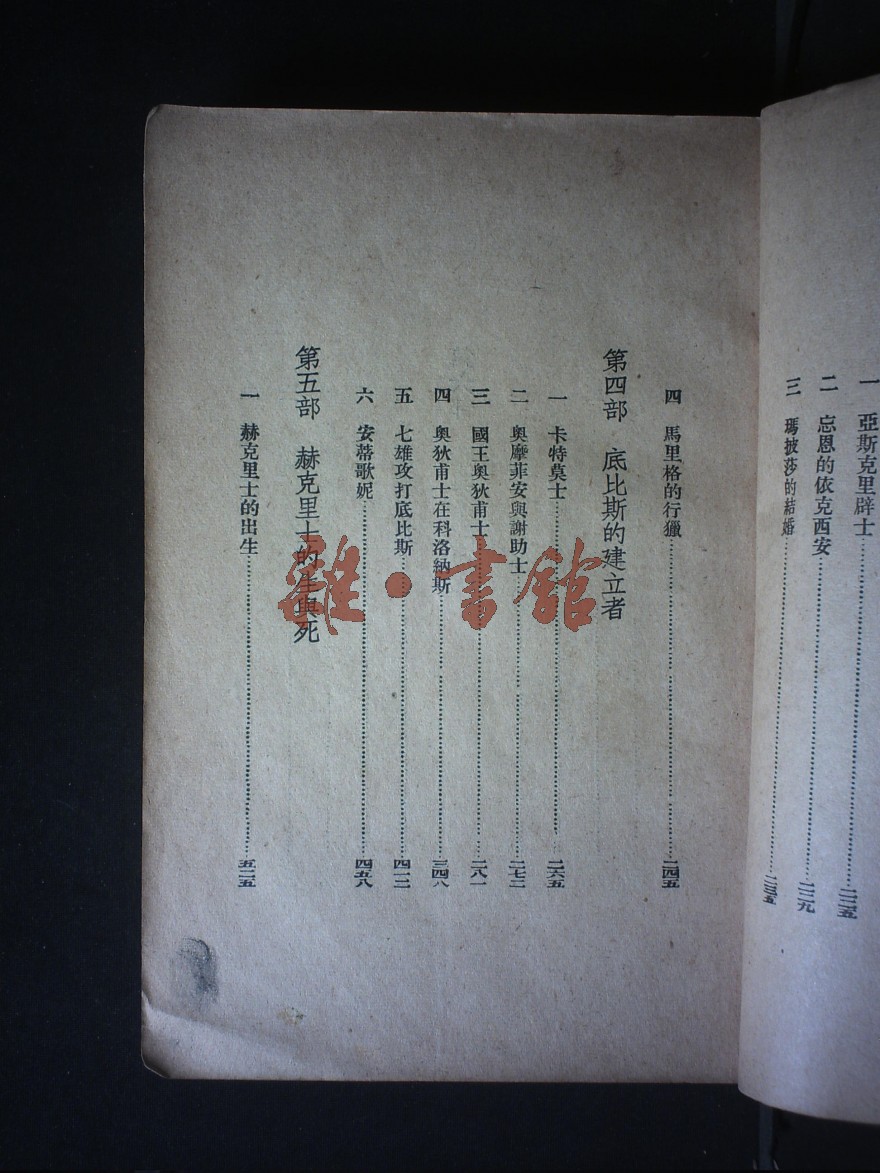 一 亞斯克里辟士……二二五
二 忘恩的依克西安……二二九
三 瑪披莎的結婚……二三五
四 馬里格的行獵……二四五
第四部 底比斯的建立者
一 卡特莫士……二六五
二 奧靡菲安與謝助士……二七三
三 國王奧狄甫士……二八一
四 奧狄甫士在科洛納斯……三四八
五 七雄攻打底比斯……四一二
六 安蒂歌妮……四五八
第五部 赫克里士的生與死
一 赫克里士的出生……五二五
雜·書館